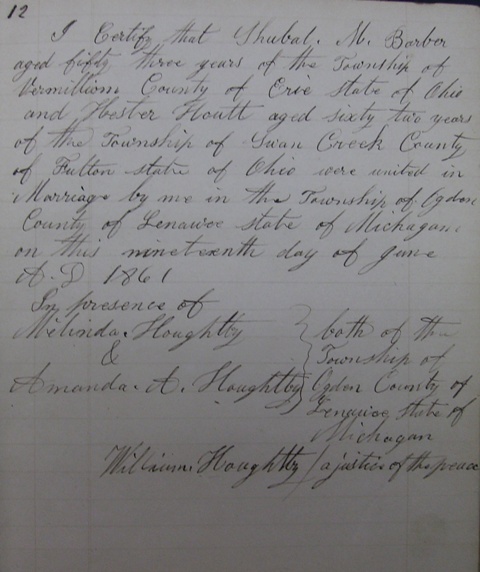 12
I Certify that Shubal. M. Barber
aged fifty three years of the Township of
Vermillion County of Erie state of Ohio
and Hester Houtt aged sixty two years
of the Township of Swan Creek County
of Fulton state of Ohio were united in
Marriage by me in the Township of Ogden
County of Lenawee state of Michagan.
on this nineteenth day of June
A. D 1861
In presence of
Melinda. Houghtby
&
Amanda. A. Houghtby
both of the
Township of
Ogden County of
Lenawee state of
Michagan
William. Houghtby / a justice of the peace